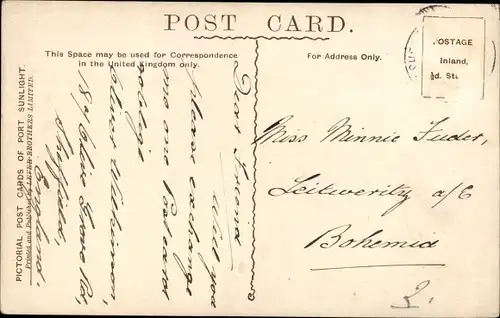 POST CARD.
This Space may be used for Correspondence
in the United Kingdom only.
For Address Only.
POSTAGE
Inland,
½d. St
PICTORIAL POST CARDS OF PORT SUNLIGHT.
Printed and Published by LEVER BROTHERS LIMITED.
Dear Friend
Will you
please exchange
me one Postcard
oblige
18
Sheffield,
England.
Miss Minnie Fuder,
Leitweritz a/E
Bohemia
3.